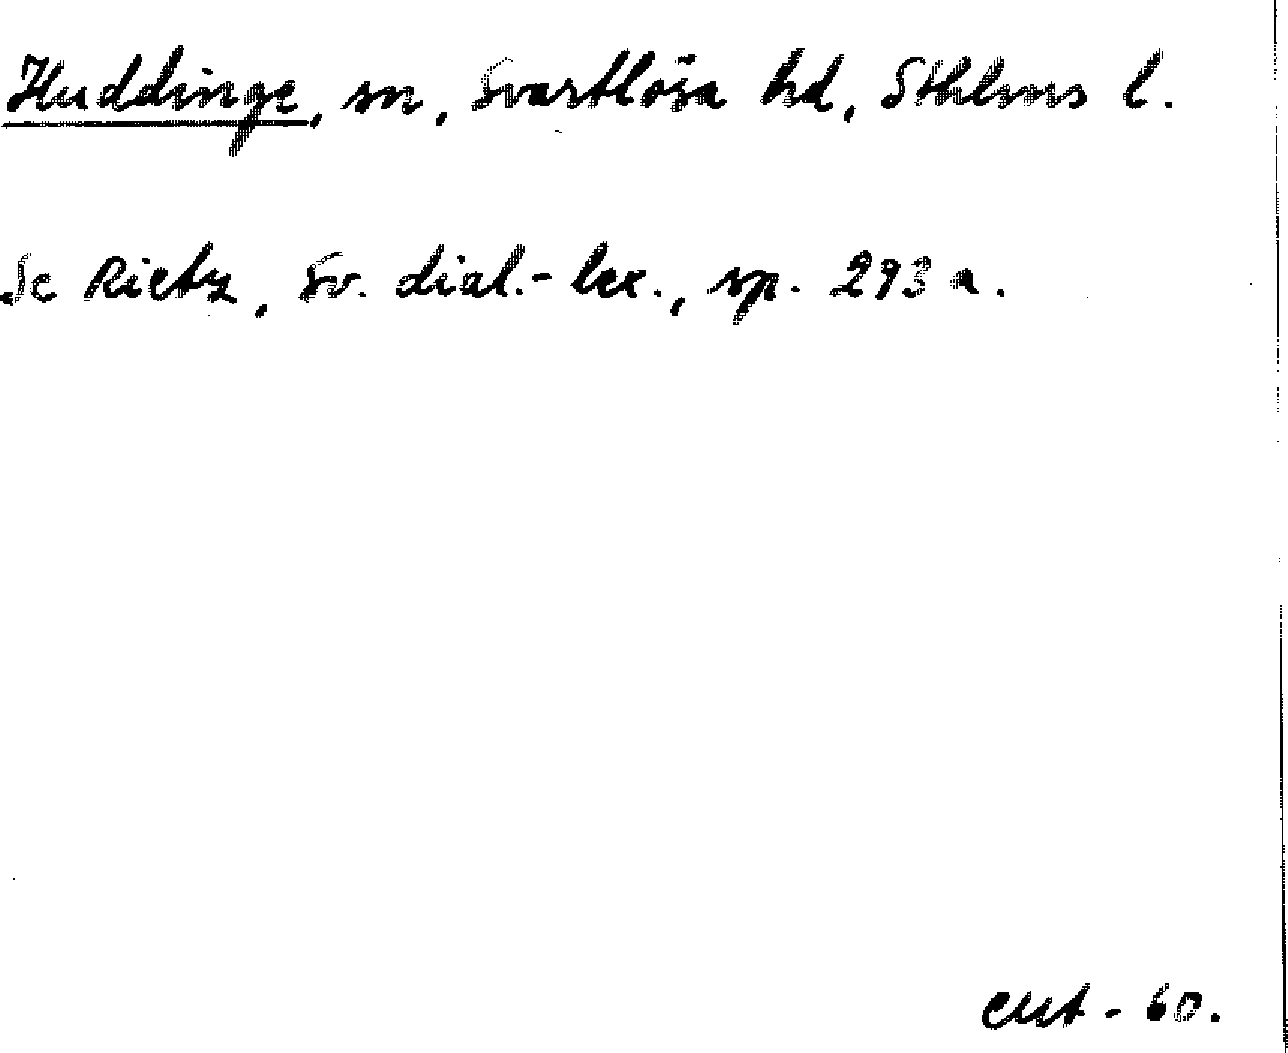 Huddinge, sn, Svartlösa hd, Sthlms l.
Se Rietz, Sv. dial.-lex., sp. 293 a.
- 60.